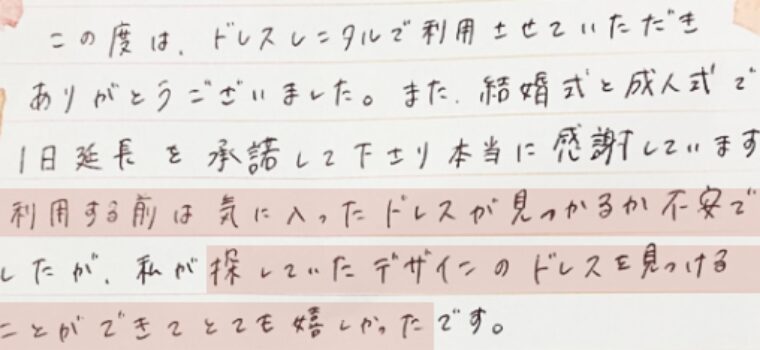 この度は、ドレスレンタルで利用させていただき
ありがとうございました。また、結婚式と成人式で
1日延長を承諾して下さり本当に感謝しています
利用する前は気に入ったドレスが見つかるか不安で
したが、私が探していたデザインのドレスを見つける
ことができてとても嬉しかったです。